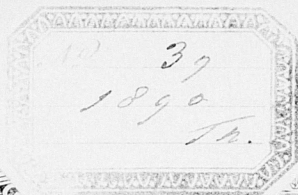 No 37
1890
Th.